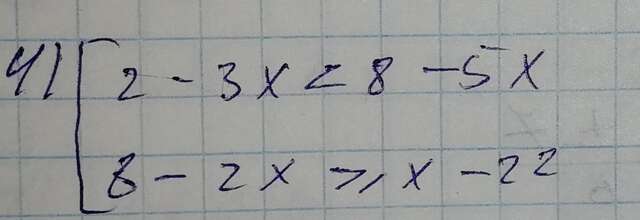 4) [ 2 - 3x < 8 - 5x
8 - 2x ⩾ x - 22